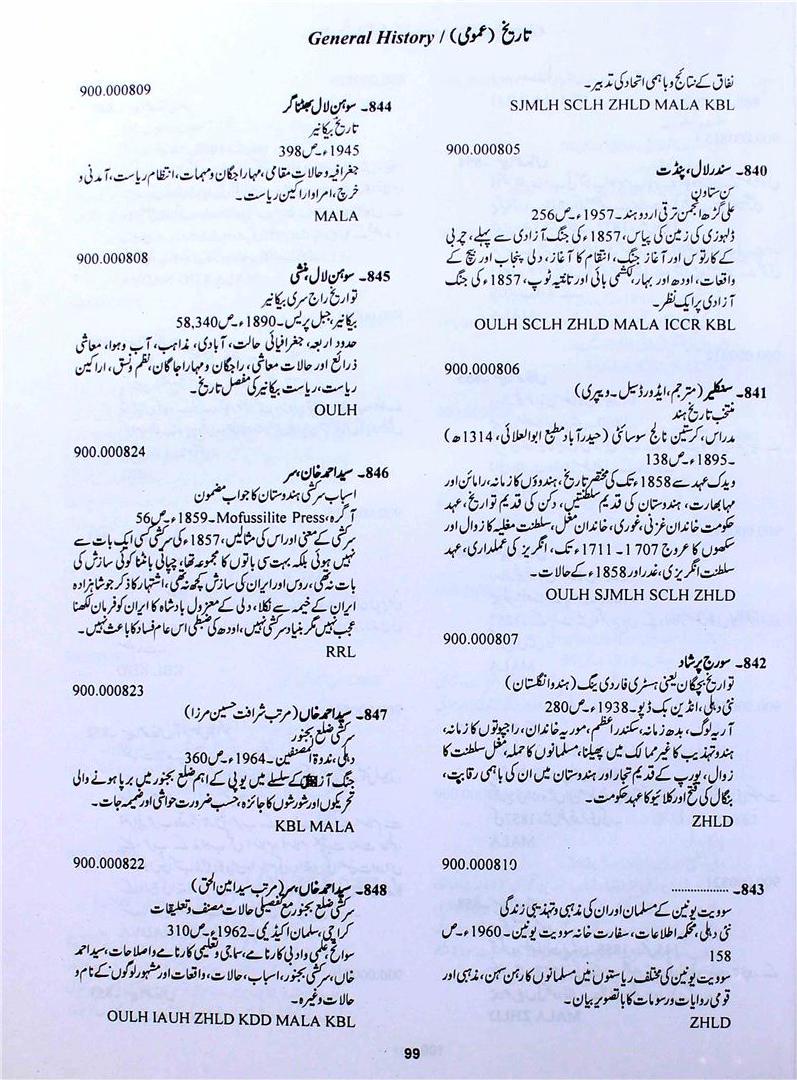 General History / تاریخ (عمومی)
نفاق کے نتائج و باہمی اتحاد کی تدبیر۔
SJMLH SCLH ZHLD MALA KBL
900.000805
840۔ سندر لال، پنڈت
سن ستاون
علی گڑھ انجمن ترقی اردو ہند۔ 1957ء۔ص 256
ڈلہوزی کی زمین کی پیاس، 1857ء کی جنگ آزادی سے پہلے، چربی
کے کارتوس اور آغاز جنگ، انتقام کا آغاز، دلی پنجاب اور بیچ کے
واقعات، اودھ اور بہار، لکشمی بائی اور تانتیہ ٹوپ، 1857ء کی جنگ
آزادی پر ایک نظر۔
OULH SCLH ZHLD MALA ICCR KBL
900.000806
841۔ سنکلیر (مترجم، ایڈورڈ سیل۔ ویپری)
منتخب تاریخ ہند
مدراس، کرسچین نالج سوسائٹی (حیدرآباد مطبع ابوالعلائی، 1314ھ)
۔1895ء۔ص 138
ویدک عہد سے 1858ء تک کی مختصر تاریخ، ہندوؤں کا زمانہ، رامائن اور
مہابھارت، ہندوستان کی قدیم سلطنتیں، دکن کی قدیم تواریخ، عہد
حکومت خاندان غزنی، غوری، خاندان مغل، سلطنت مغلیہ کا زوال اور
سکھوں کا عروج 1707۔1711ء تک، انگریز کی عملداری، عہد
سلطنت انگریزی، غدر اور 1858ء کے حالات۔
OULH SJMLH SCLH ZHLD
900.000807
842۔ سورج پرشاد
تواریخ بچگان یعنی ہسٹری فار دی ینگ (ہندو انگلستان)
نئی دہلی، انڈین بک ڈپو۔ 1938ء۔ص 280
آریہ لوگ، بدھ زمانہ، سکندر اعظم، موریہ خاندان، راجپوتوں کا زمانہ،
ہندو تہذیب کا غیر ممالک میں پھیلنا، مسلمانوں کا حملہ، مغل سلطنت کا
زوال، یورپ کے قدیم تجار اور ہندوستان میں ان کی باہمی رقابت،
بنگال کی فتح اور کلائیو کا عہد حکومت۔
ZHLD
900.000810
843۔ ..................
سوویت یونین کے مسلمان اور ان کی مذہبی و تہذیبی زندگی
نئی دہلی، محکمہ اطلاعات، سفارت خانہ سوویت یونین۔ 1960ء۔ص
158
سوویت یونین کی مختلف ریاستوں میں مسلمانوں کا رہن سہن، مذہبی اور
قومی روایات و رسومات کا با تصویر بیان۔
ZHLD
900.000809
844۔ سوہن لال بھٹناگر
تاریخ بیکانیر
1945ء۔ص 398
جغرافیہ و حالات مقامی، مہاراجگان و مہمات، انتظام ریاست، آمدنی و
خرچ، امرا و اراکین ریاست۔
MALA
900.000808
845۔ سوہن لال، منشی
تواریخ راج سری بیکانیر
بیکانیر، جبل پریس۔ 1890ء۔ص 58,340
حدود اربعہ، جغرافیائی حالت، آبادی، مذاہب، آب و ہوا، معاشی
ذرائع اور حالات معاشی، راجگان و مہاراجاگان، نظم و نسق، اراکین
ریاست، ریاست بیکانیر کی مفصل تاریخ۔
OULH
900.000824
846۔ سید احمد خان، سر
اسباب سرکشی ہندوستان کا جواب مضمون
آگرہ، Mofussilite Press۔ 1859ء۔ص 56
سرکشی کے معنی اور اس کی مثالیں، 1857ء کی سرکشی کسی ایک بات سے
نہیں ہوئی بلکہ بہت سی باتوں کا مجموعہ تھا، چپاتی بانٹنا کوئی سازش کی
بات نہ تھی، روس اور ایران کی سازش کچھ نہ تھی، اشتہار کا ذکر جو شاہزادہ
ایران کے خیمہ سے نکلا، دلی کے معزول بادشاہ کا ایران کو فرمان لکھنا
عجب نہیں مگر بنیاد سرکشی نہیں، اودھ کی ضبطی اس عام فساد کا باعث نہیں۔
RRL
900.000823
847۔ سید احمد خاں (مرتب شرافت حسین مرزا)
سرکشی ضلع بجنور
دہلی، ندوۃ المصنفین۔ 1964ء۔ص 360
جنگ کے سلسلے میں یو پی کے اہم ضلع بجنور میں برپا ہونے والی
تحریکوں اور شورشوں کا جائزہ، حسب ضرورت حواشی اور ضمیمہ جات۔
KBL MALA
900.000822
848۔ سید احمد خاں، سر (مرتب سید امین الحق)
سرکشی ضلع بجنور مع تفصیلی حالات مصنف و تعلیقات
کراچی، سلمان اکیڈیمی۔ 1962ء۔ص 310
سوانح علمی و ادبی کارنامے، سماجی و تعلیمی کارنامے و اصلاحات، سید احمد
خاں، سرکشی بجنور، اسباب، حالات، واقعات اور مشہور لوگوں کے نام و
حالات وغیرہ۔
OULH IAUH ZHLD KDD MALA KBL
99